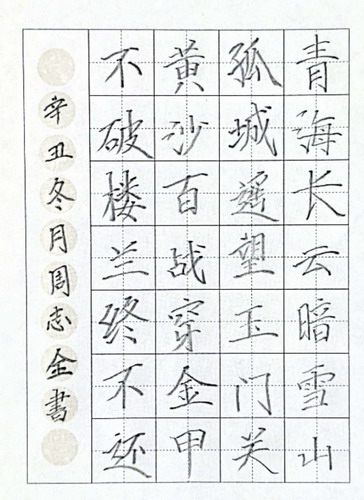 青海长云暗雪山
孤城遥望玉门关
黄沙百战穿金甲
不破楼兰终不还
辛丑冬月周志全书